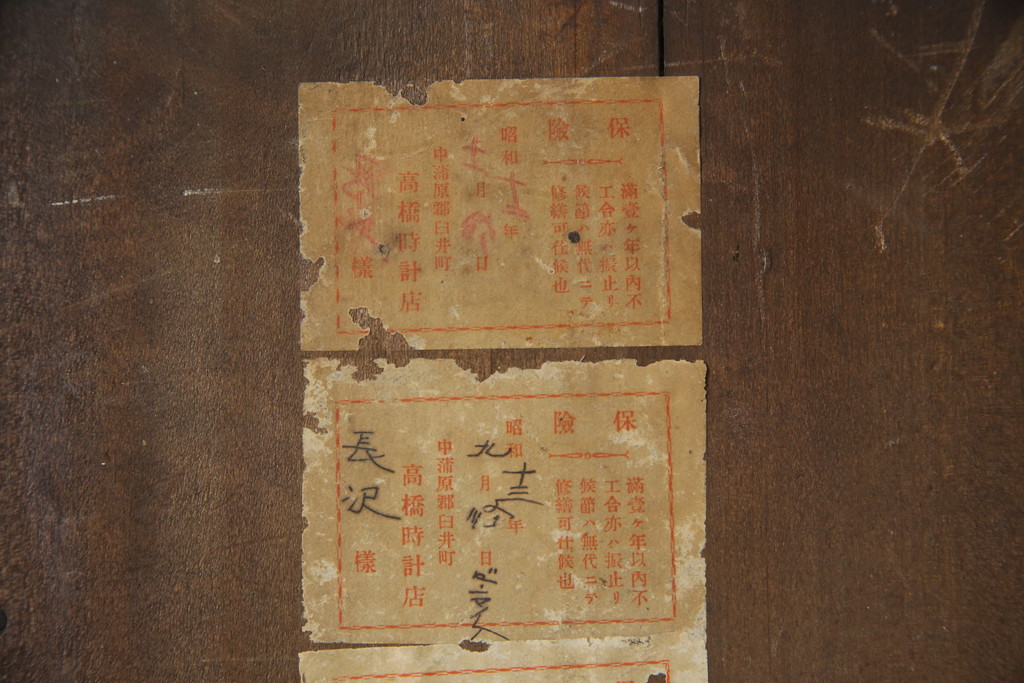 保險
滿壹ヶ年以內不
工合亦ハ振止リ
候節ハ無代ニテ
修繕可仕候也
昭和十二年
十二月 日
中蒲原郡臼井町
高橋時計店
樣
保險
滿壹ヶ年以內不
工合亦ハ振止リ
候節ハ無代ニテ
修繕可仕候也
昭和十三年
九月 日
中蒲原郡臼井町
高橋時計店
長沢樣